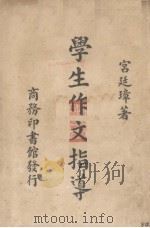 宮廷璋著
學生作文指導
商務印書館發行